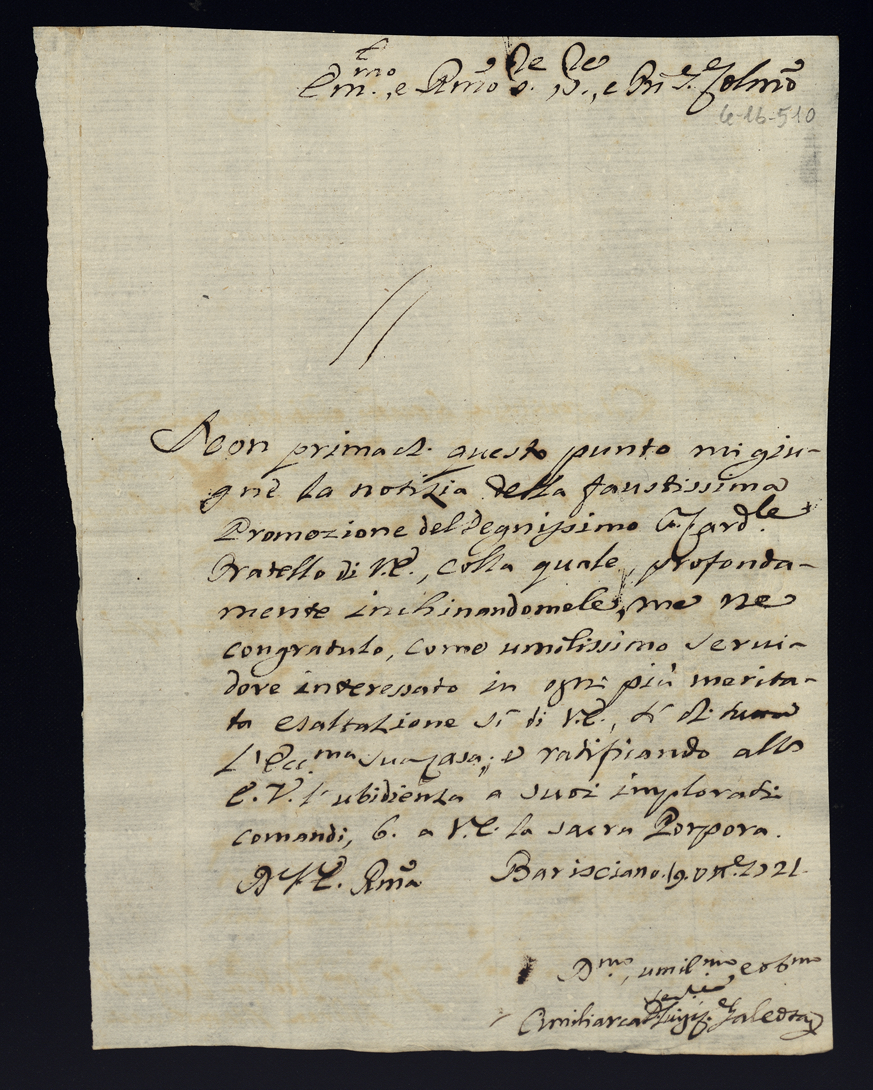 Em.mo, e Rmo Sre, P., e Pn Colmo
6-16-510
Non prima di questo punto mi giu-
gne la notizia della faustissima
Promozione del Degnissimo Card.le
Fratello di V.E., colla quale, profonda-
mente inchinandomele, me ne
congratulo, come umilissimo servi-
dore interessato in ogni più merita-
ta esaltazione sì di V.E., sì di tutta
l'Ecc.ma Sua Casa; e ratificando alla
E.V. l'ubidienza a suoi implorati
comandi, b. a V.E. la sacra Porpora.
D V.E. Rma Barisciano. 19. 1721.
D.mo, umil.mo, e ob.mo